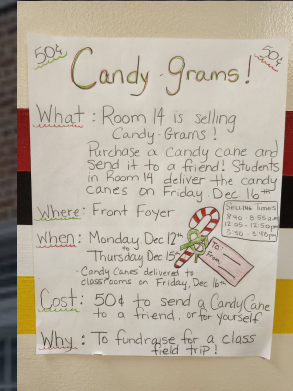 50¢
50¢
Candy-grams!
What: Room 14 is selling
Candy-Grams!
Purchase a candy cane and
send it to a friend! Students
in Room 14 deliver the candy
canes on Friday, Dec 16th
Where: Front Foyer
SELLING TIMES
8:40 - 8:55 a.m
12:05 - 12:50 pm
When: Monday, Dec 12th
to
Thursday Dec 15th
To:
From:
- Candy Canes delivered to
classrooms on Friday, Dec 16th
Cost: 50¢ to send a Candy Cane
to a friend, or for yourself
Why: To fundraise for a class
field trip!